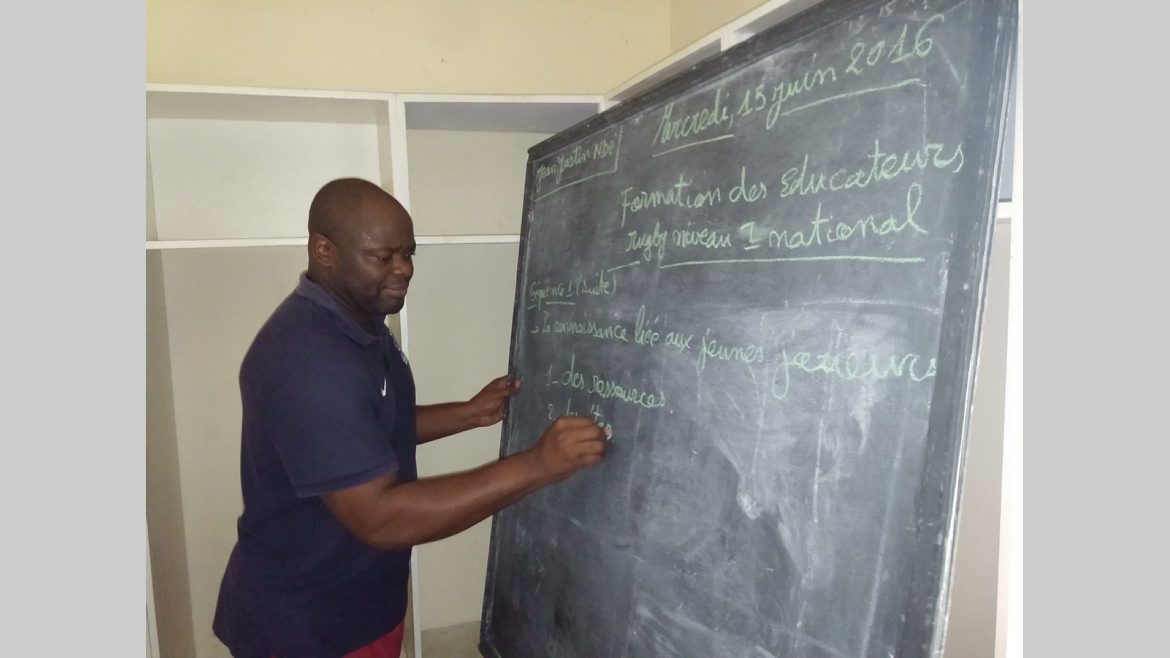 Jean Justin NDé
Mercredi, 15 juin 2016
Formation des Educateurs
rugby niveau 1 national
Séquence 1 (suite)
→ La connaissance liée aux jeunes joueurs
1_ des ressources.
2